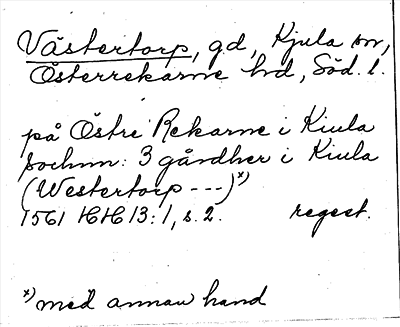 Västertorp, gd, Kjula sn,
Österrekarne hd, Söd. l.
på Östre Rekarne i Kiula
sochnn: 3 gårdher i Kiula
(Westertorp ---)*)
1561 HH 13:1, s. 2. regest.
*) med annan hand